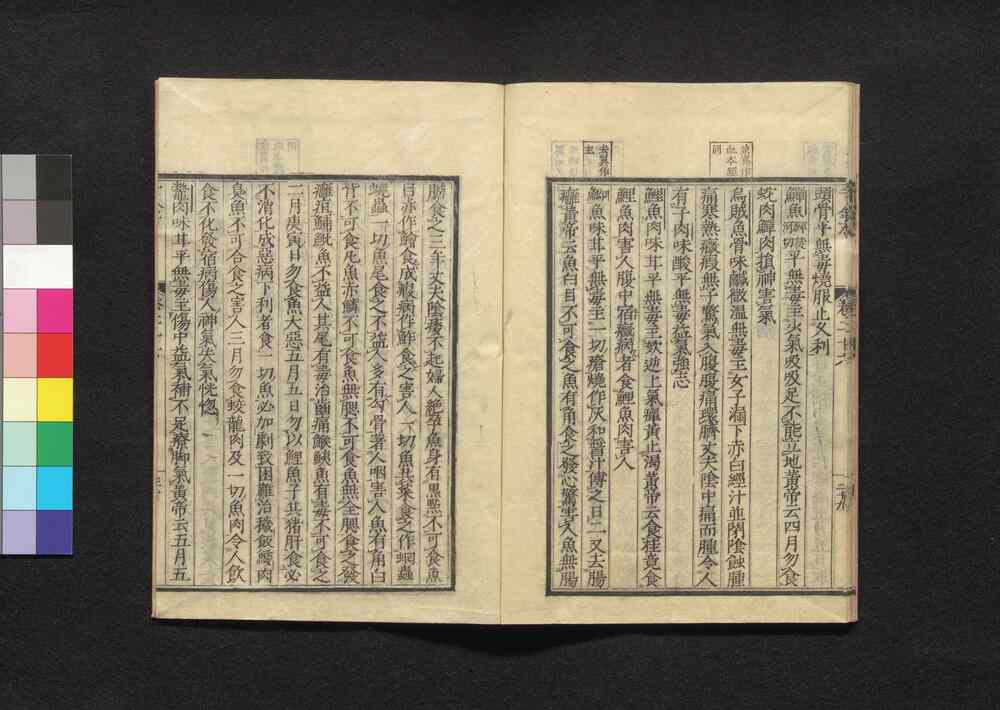 頭骨平無毒燒服止久利
䱇魚平無毒主少氣吸吸足不能立地黃帝云四月勿食
蛇肉䱇肉損神害氣
烏賊魚骨味鹹微溫無毒主女子漏下赤白經汁血閉陰蝕腫
痛寒熱癥瘕無子驚氣入腹腹痛環臍丈夫陰中痛而腫令人
有子肉味酸平無毒益氣強志
鯉魚肉味甘平無毒主欬逆上氣癉黃止渴黃帝云食桂竟食
鯉魚肉害人腹中宿癥病者食鯉魚肉害人
鯽魚味甘平無毒主一切瘡燒作灰和醬汁傅之日二又去腸
癰黃帝云魚白目不可食之魚有角食之發心驚害人魚無腸
膽食之三年丈夫陰痿不起婦人絕孕魚身有黑點不可食魚
目赤作鱠食成瘕病作鮓食之害人一切魚共菜食之作蛔蟲
蟯蟲一切魚尾食之不益人多有勾骨著人咽害人魚有角白
背不可食凡魚赤鱗不可食魚無腮不可食魚無全腮食之發
癰疽䱉𩶱魚不益人其尾有毒治齒痛鯸鮧魚有毒不可食之
二月庚寅日勿食魚大惡五月五日勿以鯉魚子共豬肝食必
不消化成惡病下利者食一切魚必加劇致困難治穢飯餧肉
臭魚不可合食之害人三月勿食蛟龍肉及一切魚肉令人飲
食不化發宿病傷人神氣失氣恍惚
鼈肉味甘平無毒主傷中益氣補不足療脚氣黃帝云五月五